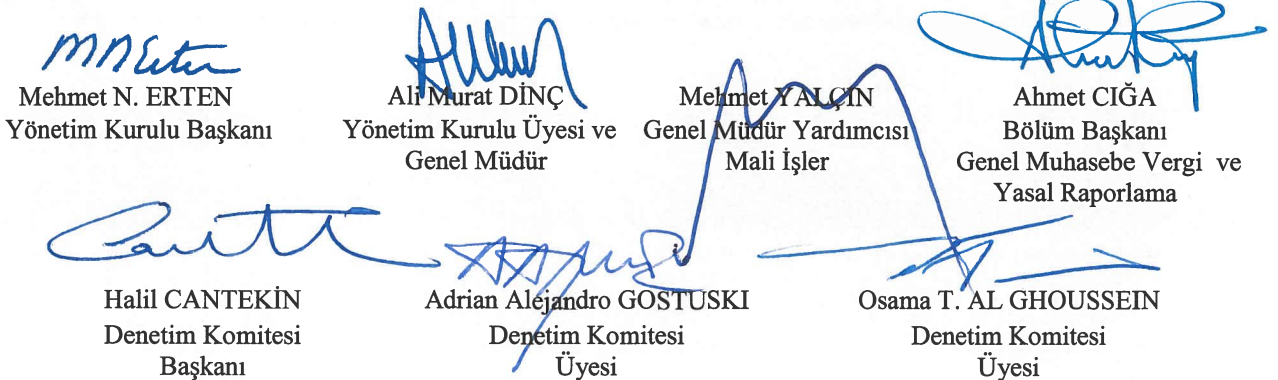 Mehmet N. ERTEN
Yönetim Kurulu Başkanı
Ali Murat DİNÇ
Yönetim Kurulu Üyesi ve
Genel Müdür
Mehmet YALÇIN
Genel Müdür Yardımcısı
Mali İşler
Ahmet CIĞA
Bölüm Başkanı
Genel Muhasebe Vergi ve
Yasal Raporlama
Halil CANTEKİN
Denetim Komitesi
Başkanı
Adrian Alejandro GOSTUSKI
Denetim Komitesi
Üyesi
Osama T. AL GHOUSSEIN
Denetim Komitesi
Üyesi